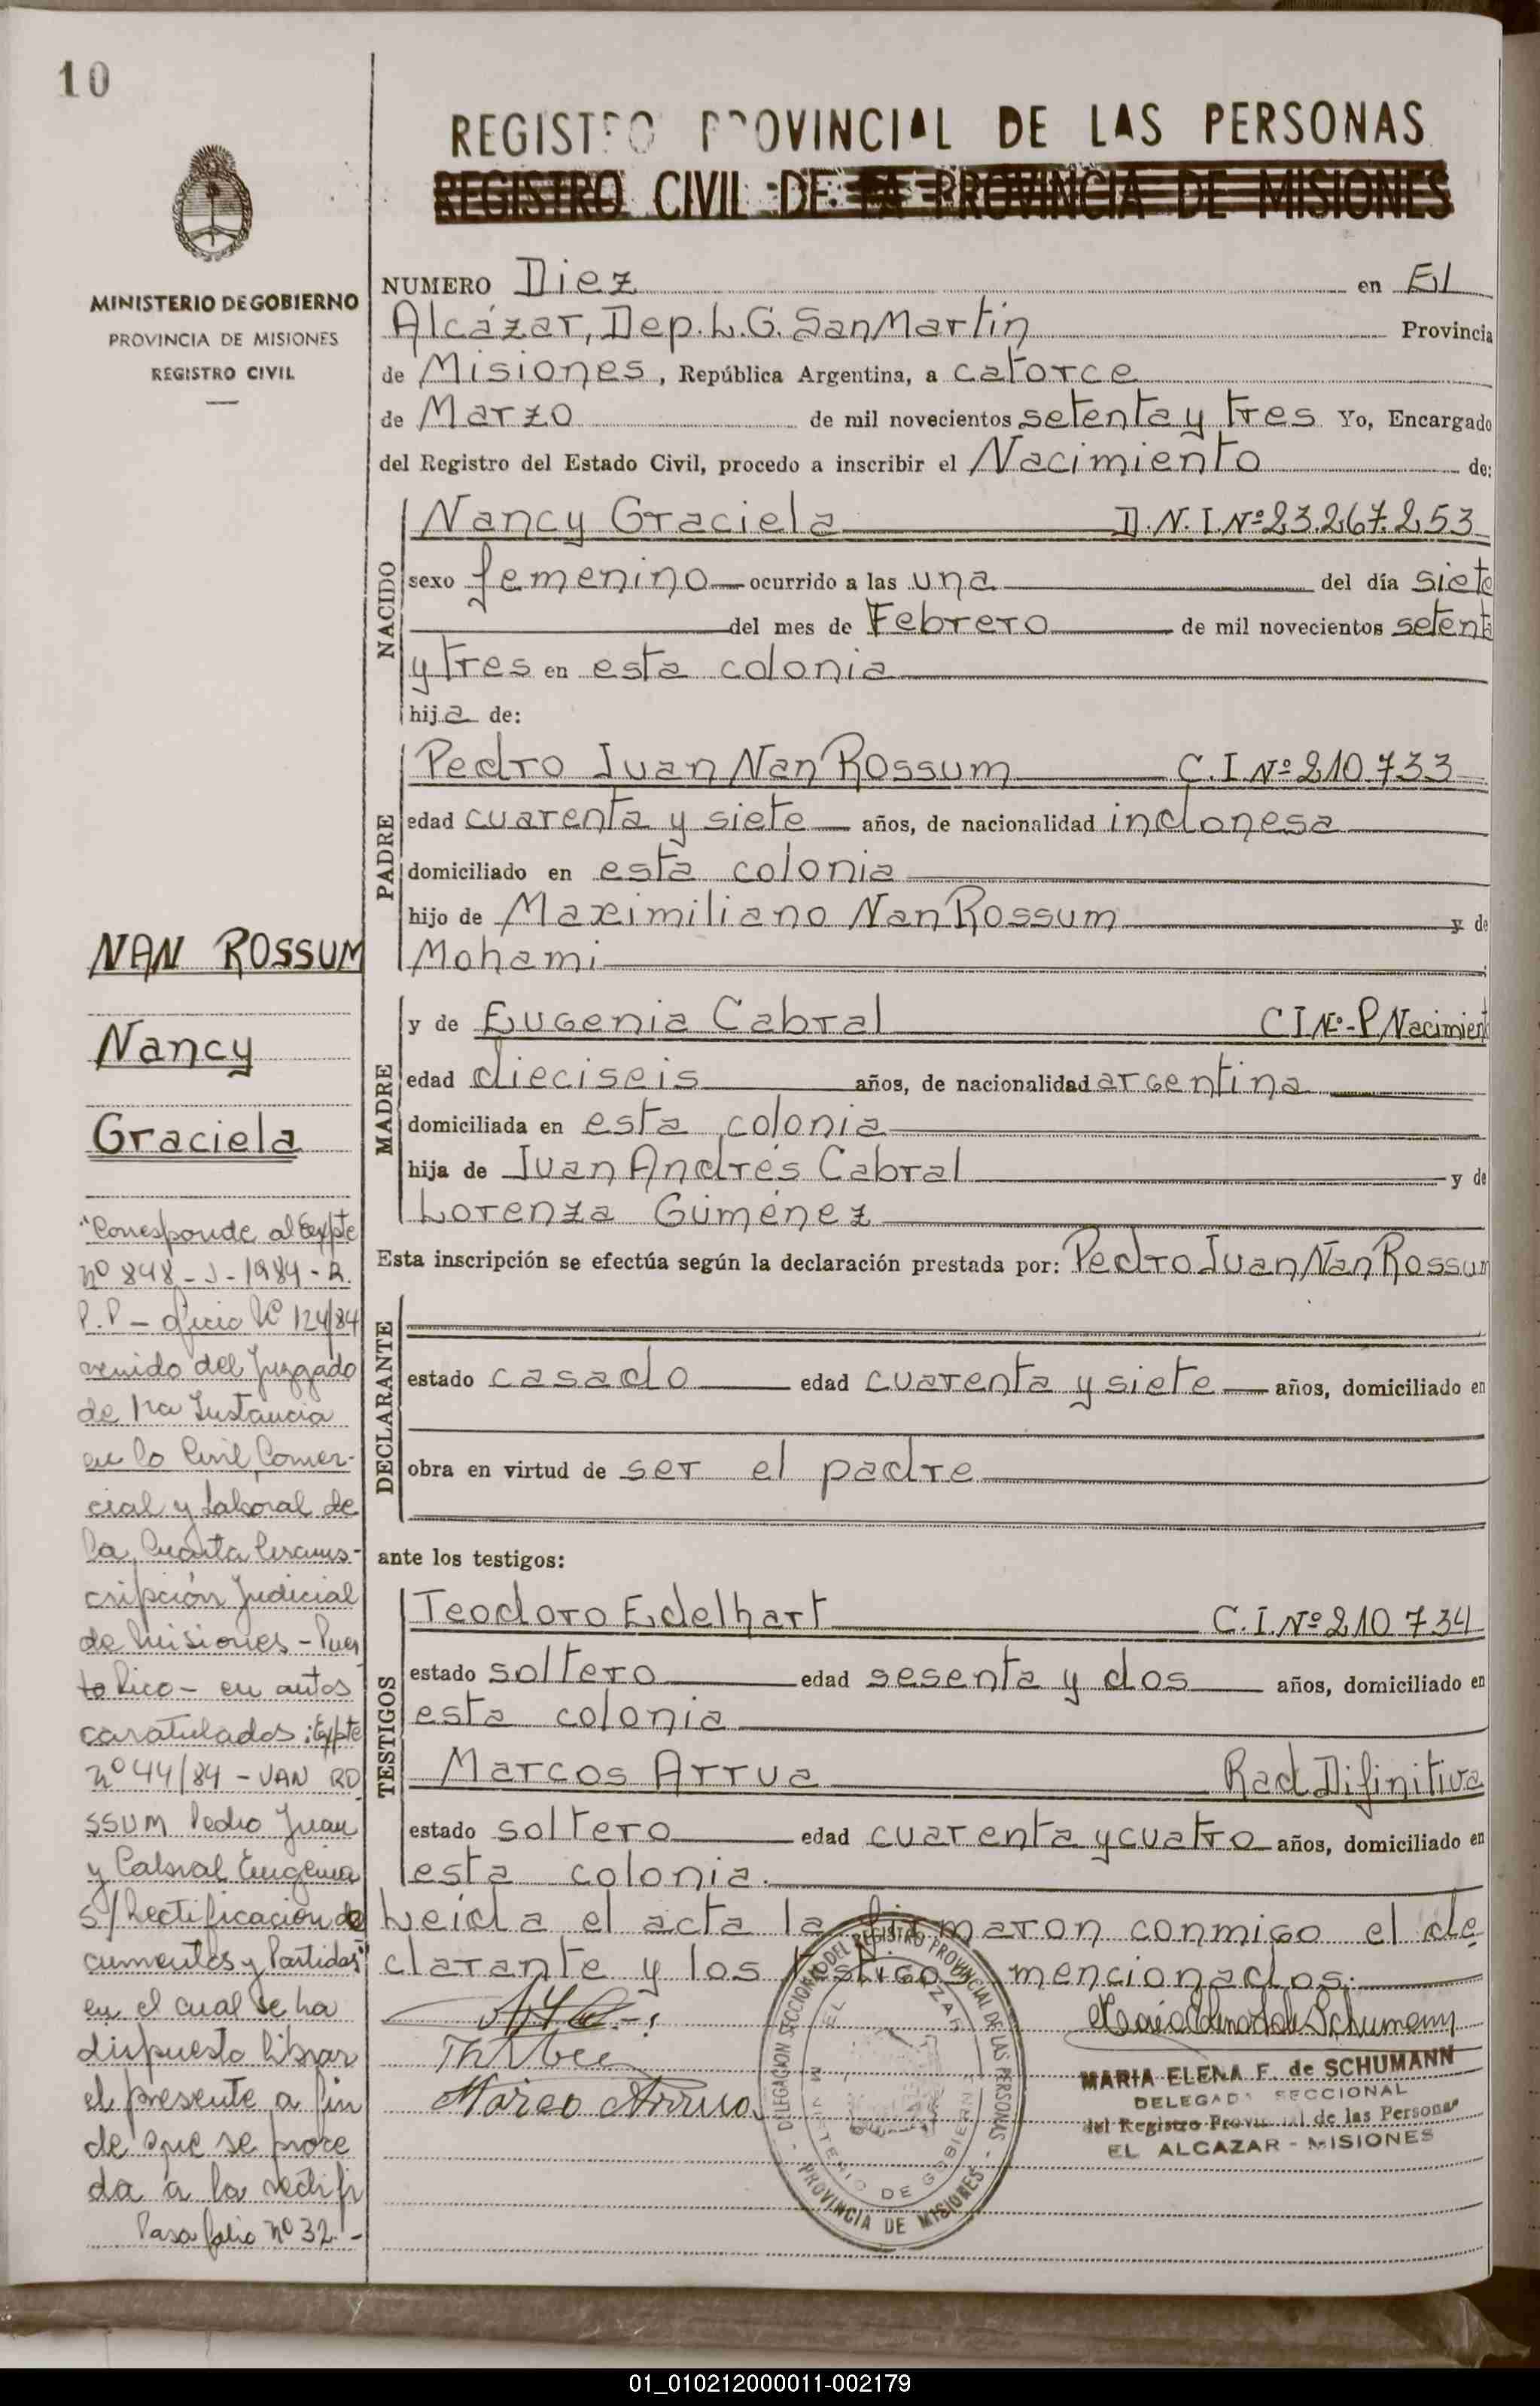 10
REGISTRO PROVINCIAL DE LAS PERSONAS
REGISTRO CIVIL DE LA PROVINCIA DE MISIONES
MINISTERIO DE GOBIERNO
PROVINCIA DE MISIONES
REGISTRO CIVIL
NUMERO Diez en El
Alcázar, Dep. L. G. San Martín Provincia
de Misiones, República Argentina, a catorce
de Marzo de mil novecientos setenta y tres Yo, Encargado
del Registro del Estado Civil, procedo a inscribir el Nacimiento de:
NACIDO
Nancy Graciela D.N.I. Nº 23.267.253
sexo femenino ocurrido a las una del día siete
del mes de Febrero de mil novecientos setenta
y tres en esta colonia
hija de:
PADRE
Pedro Juan Nan Rossum C.I Nº 210.733
edad cuarenta y siete años, de nacionalidad indonesa
domiciliado en esta colonia
hijo de Maximiliano Nan Rossum y de
Mohami
MADRE
y de Eugenia Cabral C I Nº - P. Nacimient
edad dieciseis años, de nacionalidad argentina
domiciliada en esta colonia
hija de Juan Andrés Cabral y de
Lorenza Giménez
Esta inscripción se efectúa según la declaración prestada por: Pedro Juan Nan Rossum
DECLARANTE
estado casado edad cuarenta y siete años, domiciliado en
obra en virtud de ser el padre
ante los testigos:
TESTIGOS
Teodoro Edelhart C.I. Nº 210.734
estado soltero edad sesenta y dos años, domiciliado en
esta colonia
Marcos Arrua Rad Difinitiva
estado soltero edad cuarenta y cuatro años, domiciliado en
esta colonia.
Leída el acta la firmaron conmigo el de
clarante y los testigos mencionados.
Marco Arrua
MARIA ELENA F. de SCHUMANN
DELEGADA SECCIONAL
del Registro Provincial de las Personas
EL ALCAZAR - MISIONES
DELEGACION SECCIONAL DEL REGISTRO PROVINCIAL DE LAS PERSONAS
EL ALCAZAR
MINISTERIO DE GOBIERNO
- PROVINCIA DE MISIONES -
NAN ROSSUM
Nancy
Graciela
"Corresponde al Expte
nº 848 - J - 1984 - R.
P.P - oficio Nº 124/84
venido del Juzgado
de 1ra Instancia
en lo Civil, Comer-
cial y Laboral de
la Cuarta Circuns-
cripción Judicial
de Misiones - Puer
to Rico - en autos
caratulados: Expte
nº 44/84 - VAN RO
SSUM Pedro Juan
y Cabral Eugenia
S/ Rectificación do
cumentos y Partidas"
en el cual se ha
dispuesto librar
el presente a fin
de que se proce
da a la rectifi
Pasa folio nº 32.-
01_010212000011-002179